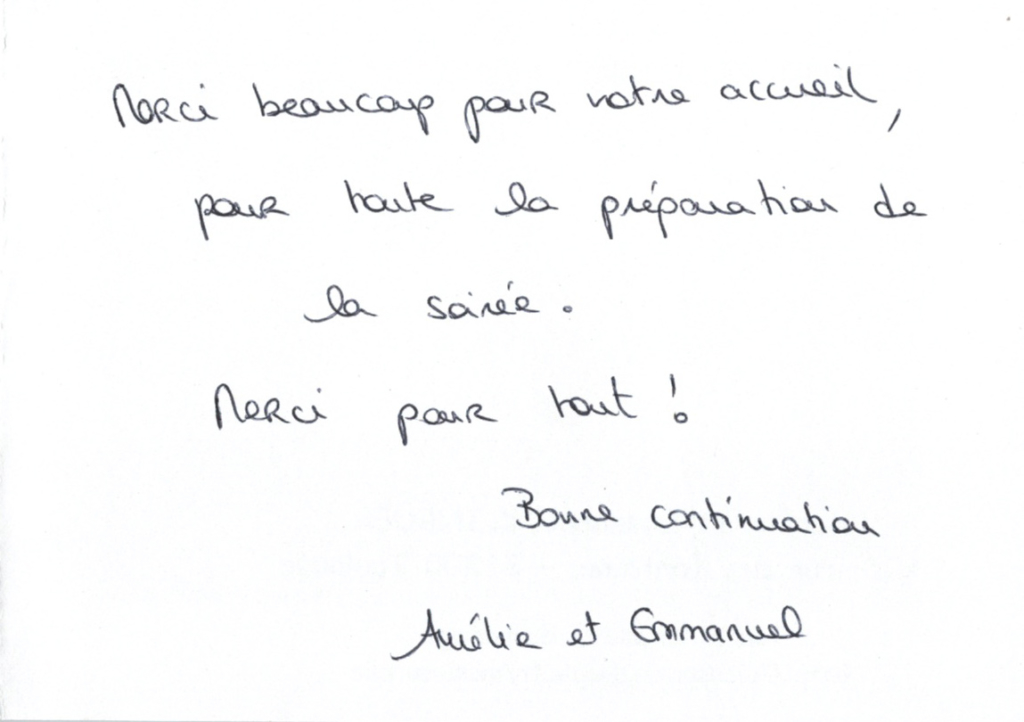 Merci beaucoup pour votre accueil,
pour toute la préparation de
la soirée.
Merci pour tout !
Bonne continuation
Amélie et Emmanuel